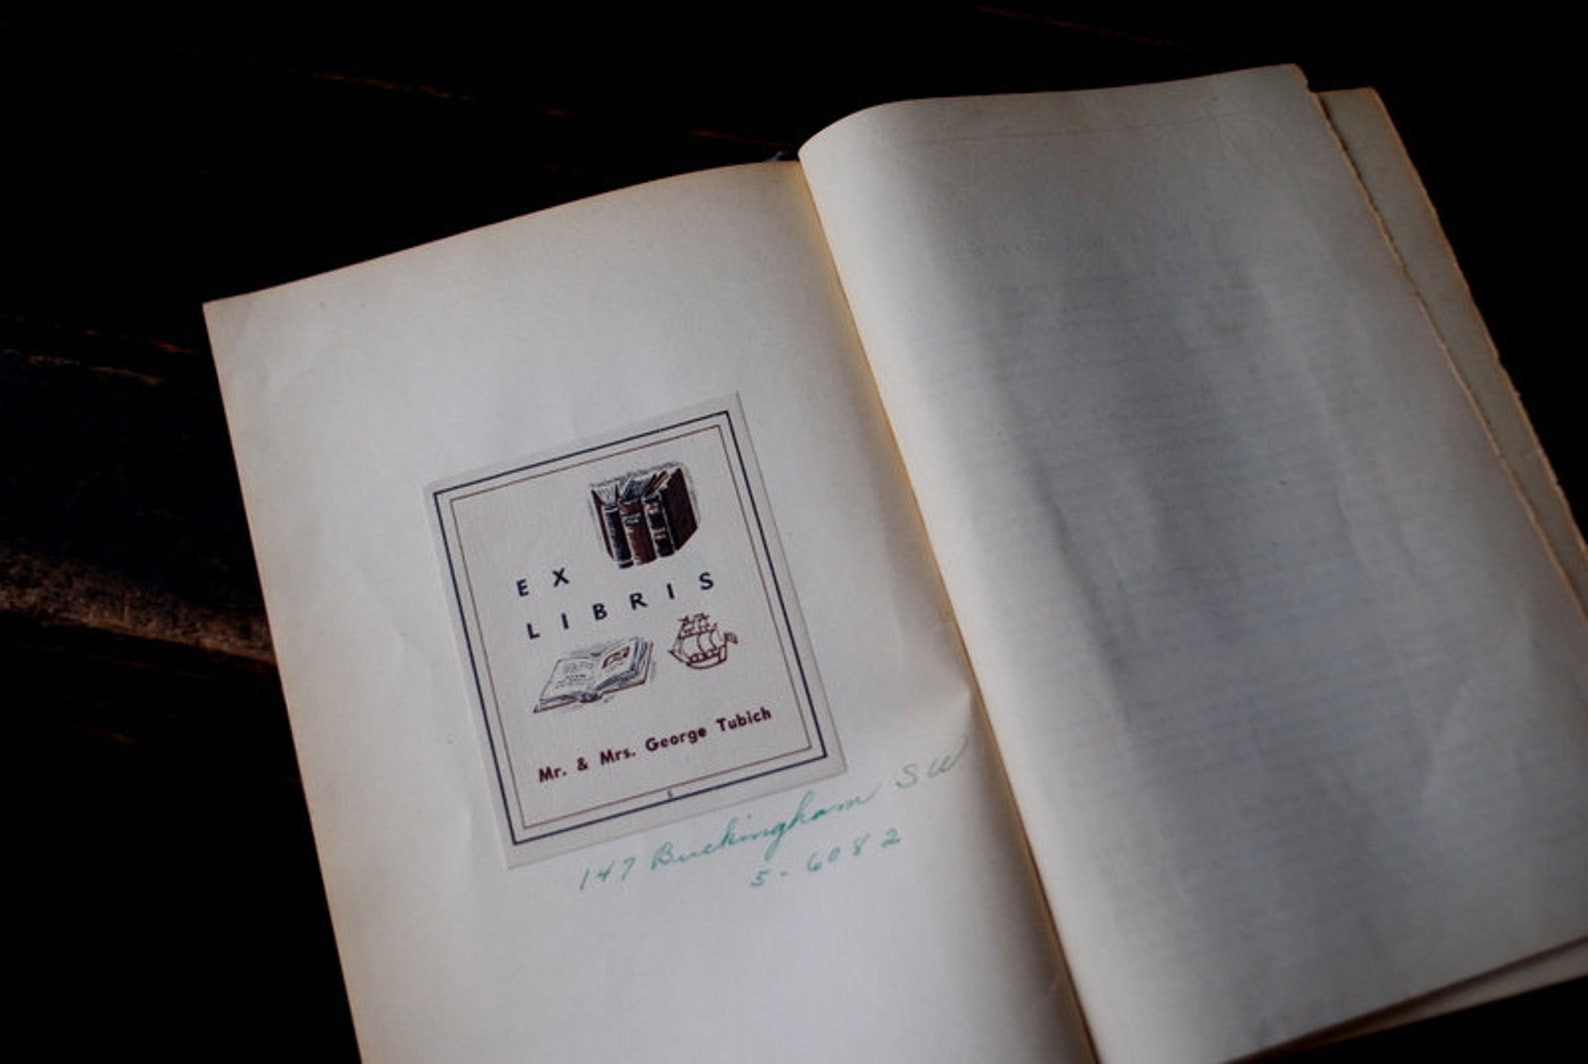 EX
LIBRIS
Mr. & Mrs. George Tubich
147 Buckingham SW
5-6082